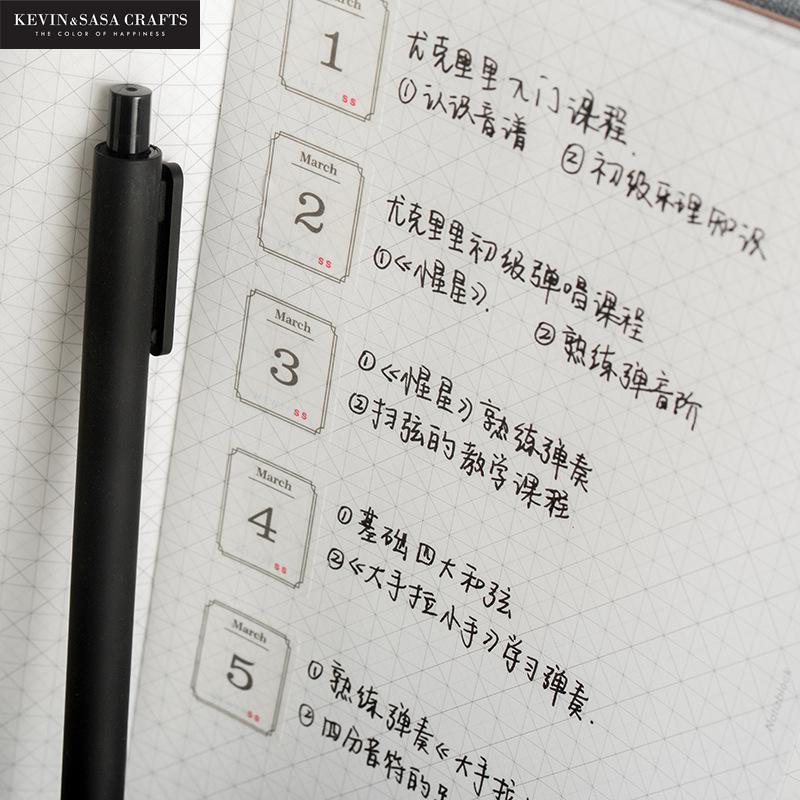 KEVIN&SASA CRAFTS
THE COLOR OF HAPPINESS
March
1
SS
尤克里里入门课程.
①认识音谱 ②初级乐理知识
March
2
SS
尤克里里初级弹唱课程
①《小星星》. ②熟练弹音阶
March
3
SS
①《小星星》熟练弹奏
②扫弦的教学课程
March
4
SS
①基础四大和弦
②《大手拉小手》学习弹奏.
March
5
SS
①熟练弹奏《大手拉
②四分音符的